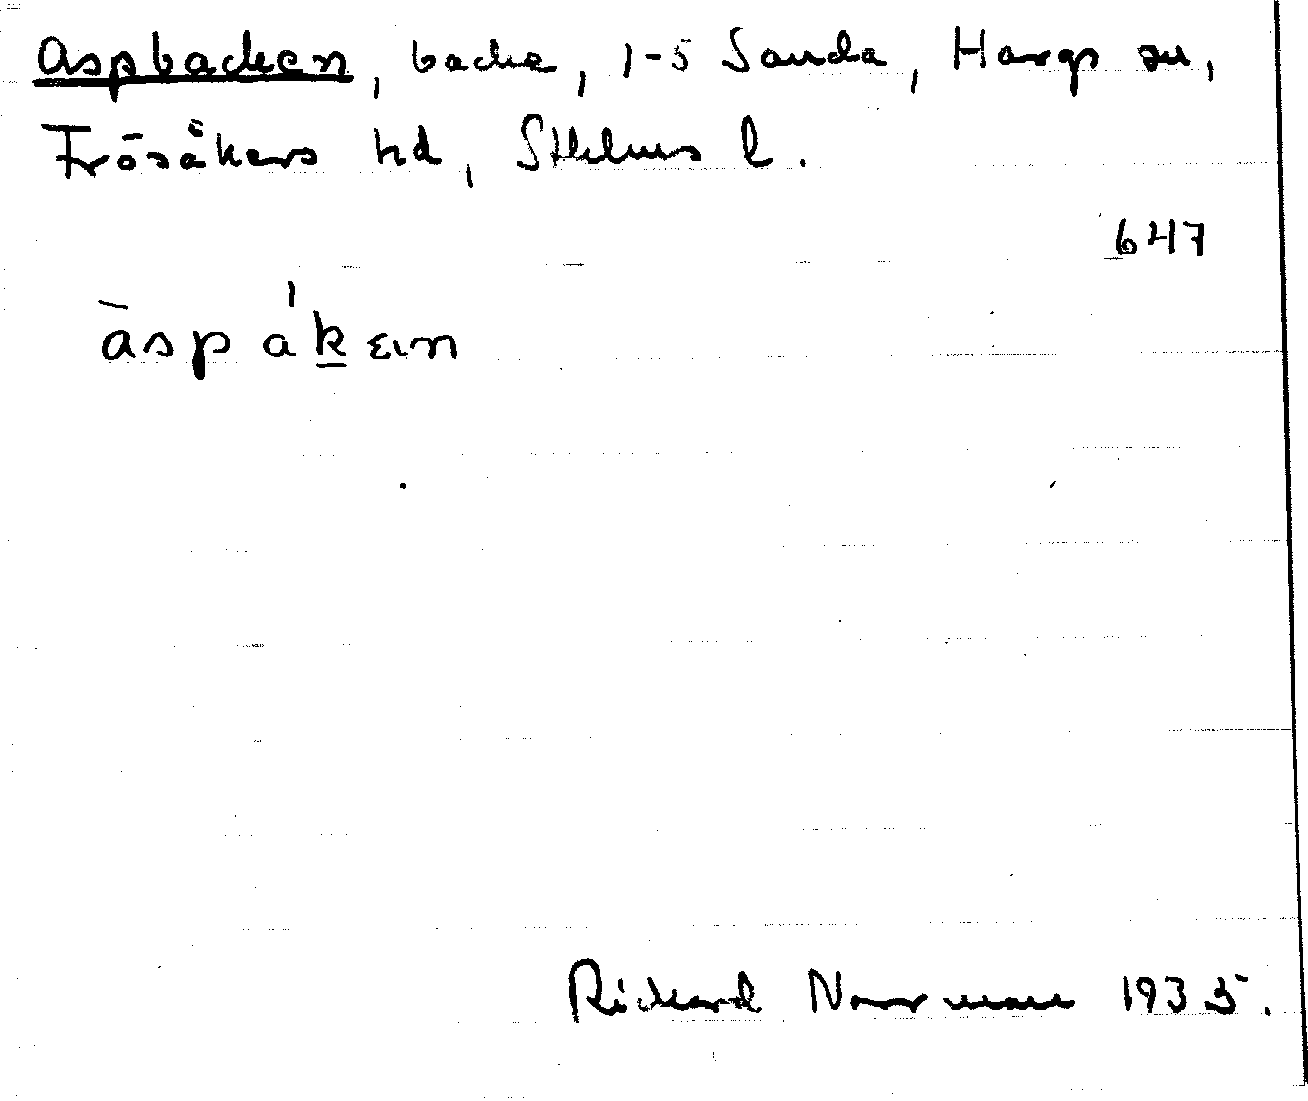 Aspbacken, backe, 1-5 Sanda, Hargs sn,
Frösåkers hd, Sthlms l.
647
àspákɛın
Rickard Norrman 1935.